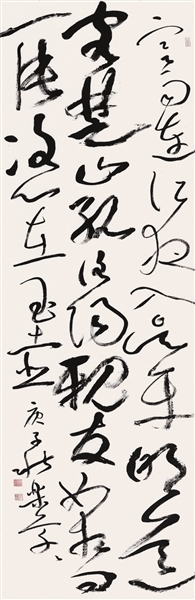 寒雨連江夜入吳平明送
客楚山孤洛陽親友如相問
一片冰心在玉壺 庚子秋